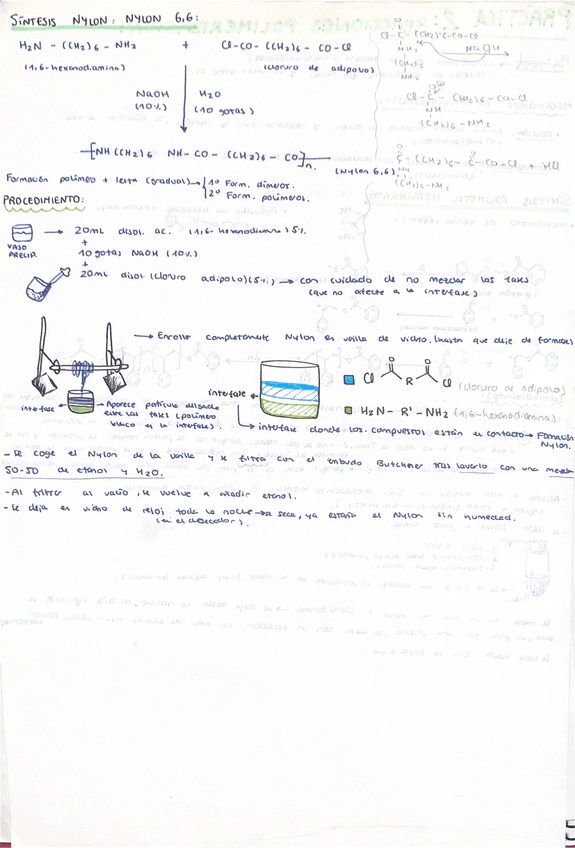 SÍNTESIS NYLON: NYLON 6,6:
H₂N - (CH₂)6 - NH₂ + Cl-CO-(CH₂)6 - CO-Cl
(1,6-hexanodiamina) (cloruro de adipolo)
NaOH H₂O
(10%) (10 gotas)
-[NH(CH₂)6 NH-CO-(CH₂)6-CO]-n. (Nylon 6,6)
Cl-C-(CH₂)6-CO-Cl
NH₂ NaOH
(CH₂)6
NH₂
Cl-C- (CH₂)6-CO-Cl
NH
(CH₂)6-NH₂
C-(CH₂)6-C-CO-Cl + HCl
NH
(CH₂)6-NH₂
Formación polímero + lenta (gradual) → 1º Form. dímeros.
2º Form. polímeros.
PROCEDIMIENTO:
VASO PRECIP. → 20mL disol. ac. (1,6-hexanodiamina) 5%
+
10 gotas NaOH (10%)
+
20mL disol (cloruro adipolo) (5%) → con cuidado de no mezclar las fases
(que no afecte a la interfase)
→ Enrollar completamente Nylon en varilla de vidrio. (hasta que deje de formarse)
interfase ← → Aparece película delgada
entre las fases (polímero
blanco en la interfase).
interfase ←
Cl R Cl (cloruro de adipolo)
H₂N- R' - NH₂ (1,6-hexanodiamina)
→ interfase donde los compuestos están en contacto → Formación
Nylon.
- Se coge el Nylon de la varilla y se filtra con el embudo Butchner tras lavarlo con una mezcla
50-50 de etanol y H₂O.
- Al filtrar al vacío, se vuelve a añadir etanol.
- Se deja en vidrio de reloj toda la noche → se seca, ya estaría el Nylon sin humedad.
(en el desecador).